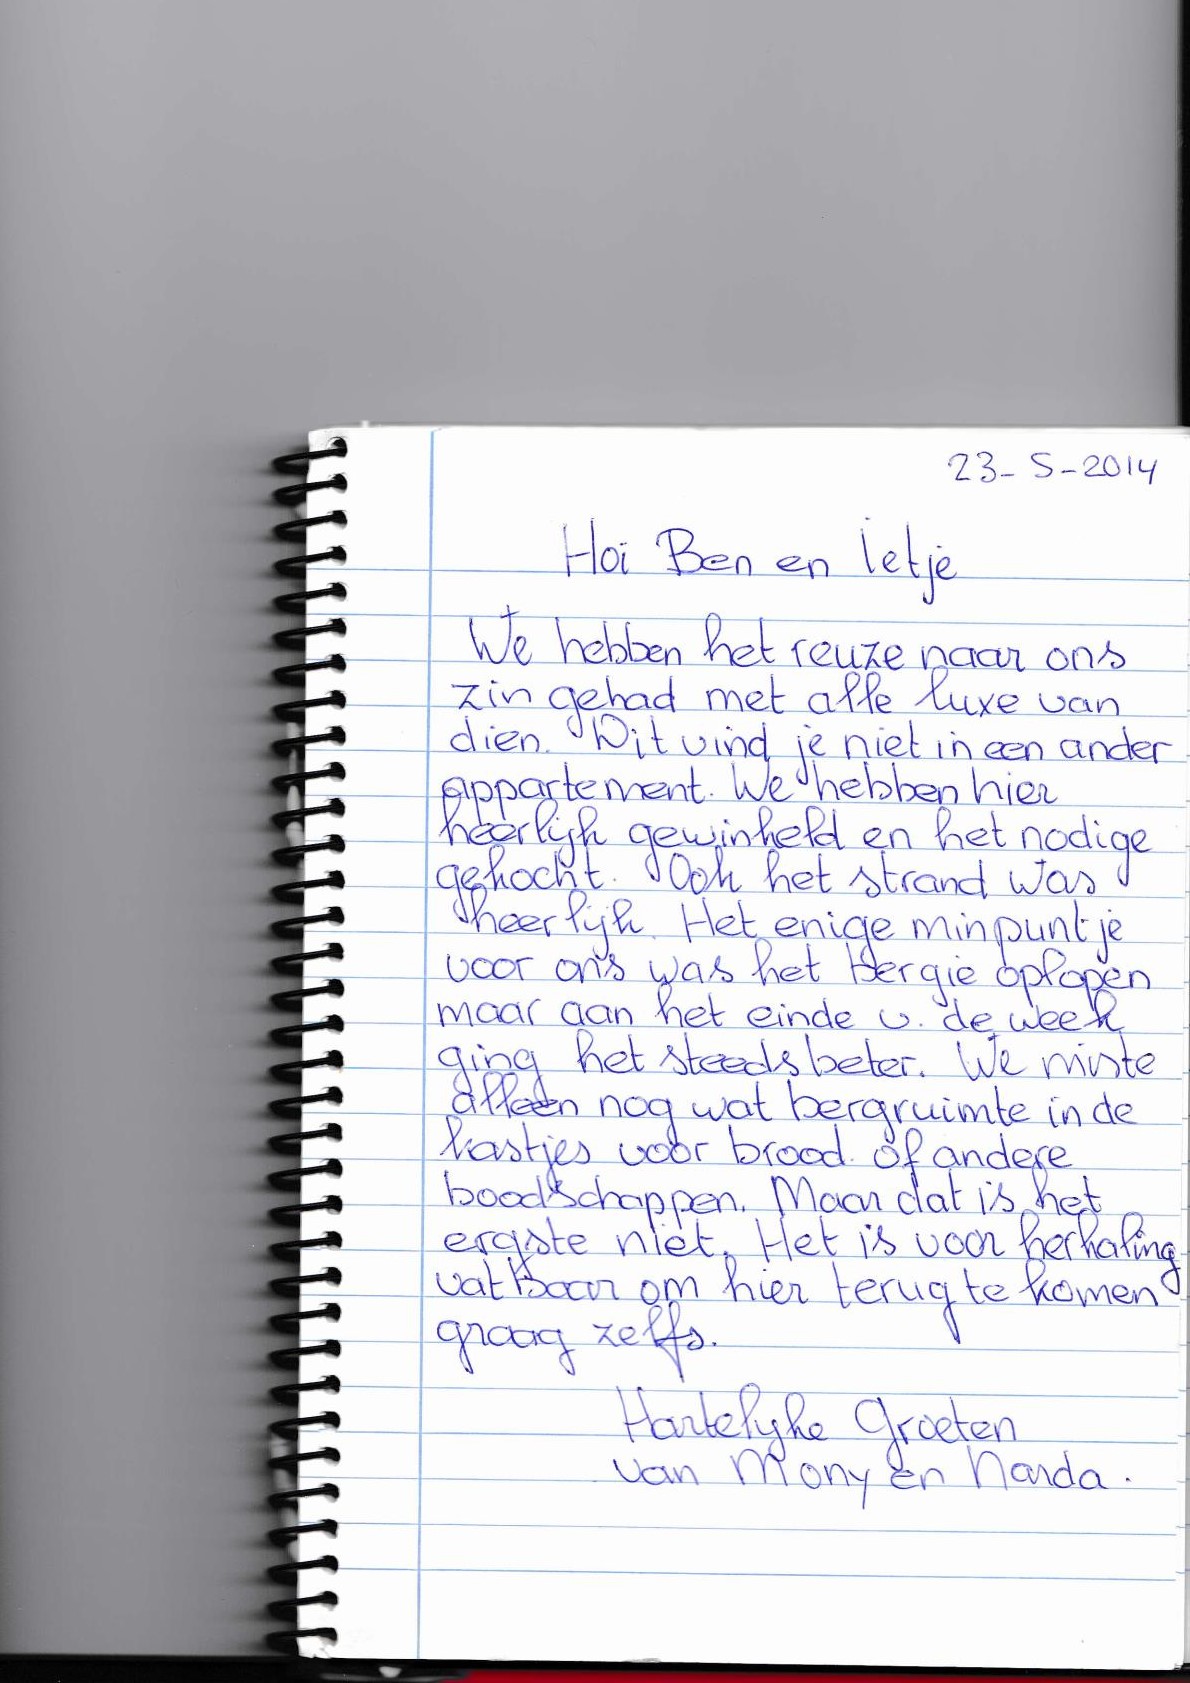 23-5-2014
Hoi Ben en Ietje
We hebben het reuze naar ons
zin gehad met alle luxe van
dien. Dit vind je niet in een ander
appartement. We hebben hier
heerlijk gewinkeld en het nodige
gekocht. Ook het strand was
heerlijk. Het enige minpuntje
voor ons was het bergie oplopen
maar aan het einde v. de week
ging het steeds beter. We miste
alleen nog wat bergruimte in de
kastjes voor brood of andere
boodschappen. Maar dat is het
ergste niet. Het is voor herhaling
vatbaar om hier terug te komen
graag zelfs.
Hartelijke Groeten
van Mony en Narda.